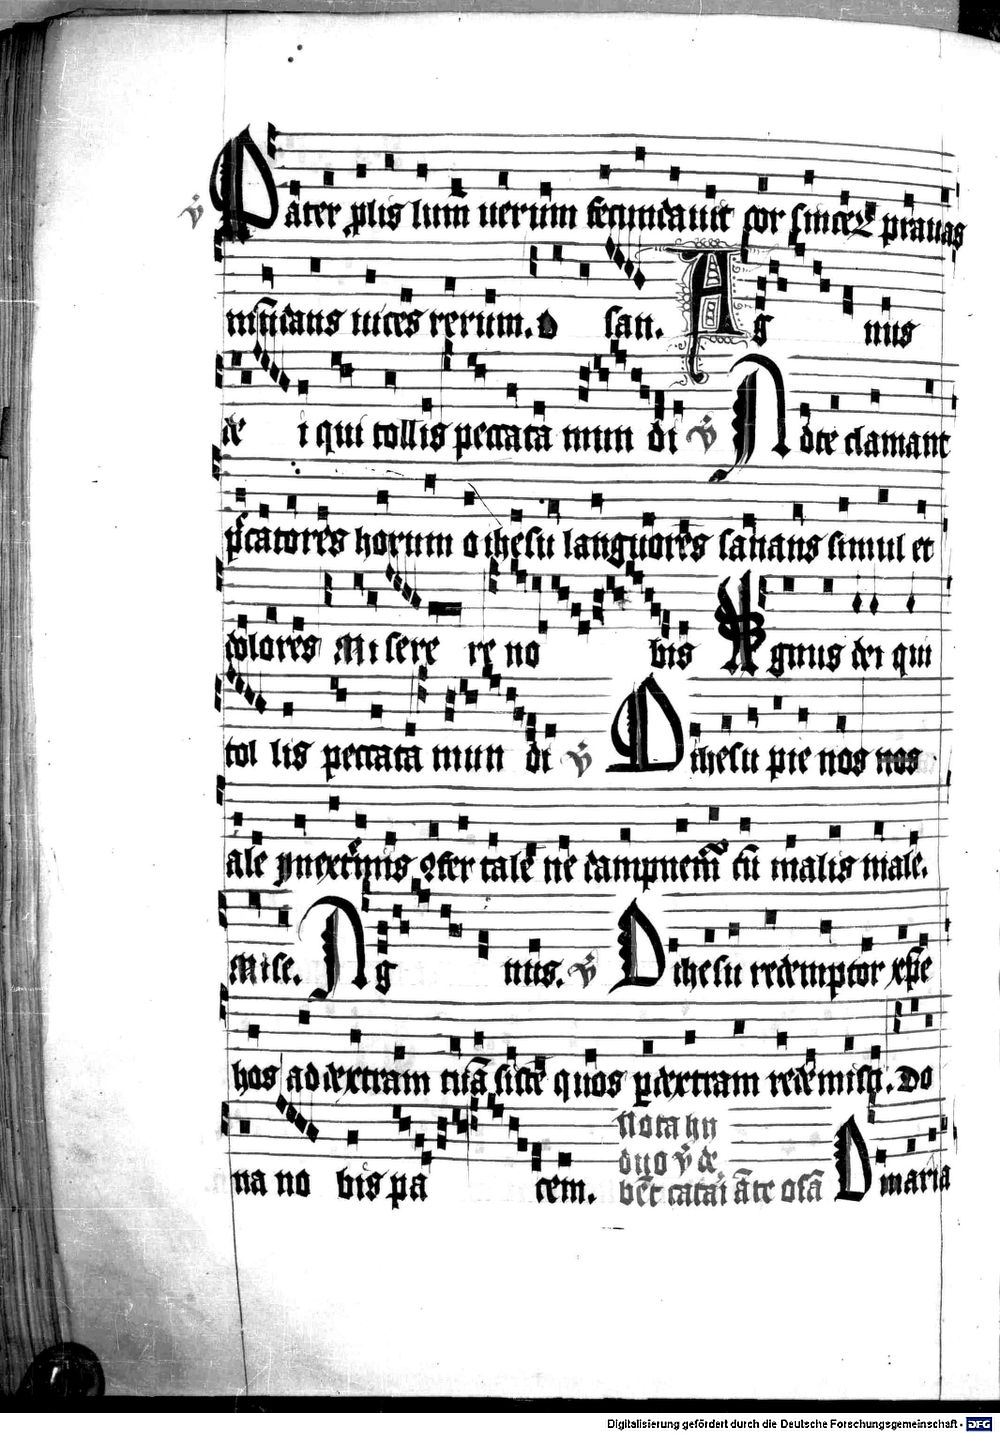 v̄ Pater prolis lumen uerum fecundauit cor sincerum prauas
nescidans uices rerum. O san. Ag nus
de i qui tollis peccata mun di v̄ Ad te clamant
peccatores horum o ihesu languores sanans simul et
dolores Mi sere re no bis Agnus dei qui
tol lis peccata mun di v̄ O ihesu pie nos nos
ale ne dampnemur cum malis male.
Mise. Ag nus. v̄ O ihesu redemptor xpe
hos ad dextram tuā siste quos per dextram redemisti. Do
na no bis pa cem. Nota hii
duo v̄ de
cātari āte osā O maria
Digitalisierung gefördert durch die Deutsche Forschungsgemeinschaft - DFG